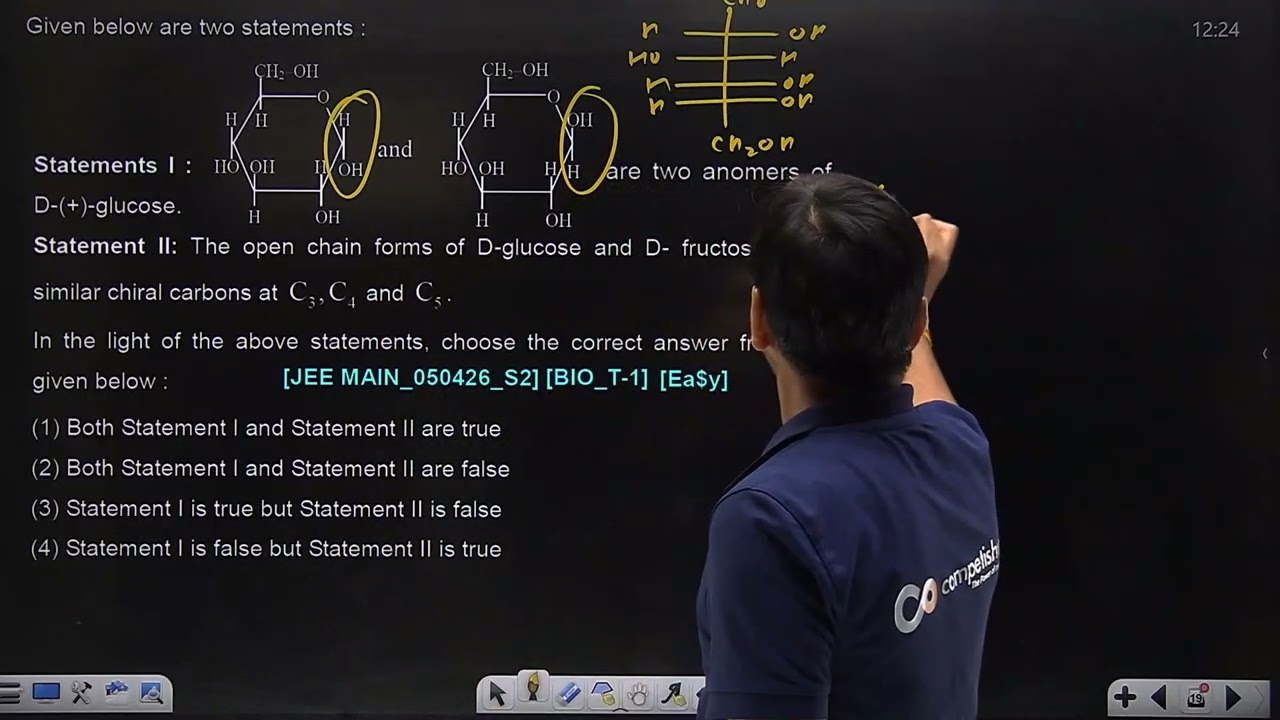 Given below are two statements :
12:24
H OH
HO H
H OH
H OH
CH₂OH
CH₂–OH
O
H H H
HO OH H OH
H OH
and
CH₂–OH
O
H H OH
HO OH H H
H OH
Statements I : are two anomers of
D-(+)-glucose.
Statement II: The open chain forms of D-glucose and D- fructos
similar chiral carbons at C₃, C₄ and C₅.
In the light of the above statements, choose the correct answer fr
given below :
[JEE MAIN_050426_S2] [BIO_T-1] [Ea$y]
(1) Both Statement I and Statement II are true
(2) Both Statement I and Statement II are false
(3) Statement I is true but Statement II is false
(4) Statement I is false but Statement II is true
19